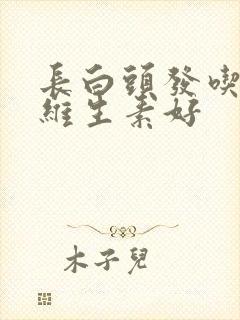 長白頭發喫
維生素好
木子兒